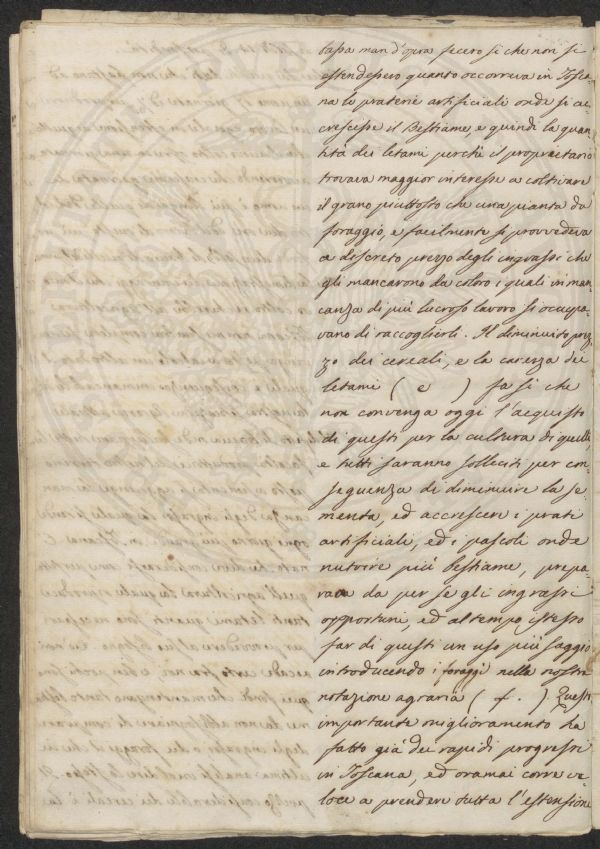 bassa man d'opra fecero sì che non si
estendessero quanto occorreva in Tosca-
na le praterie artificiali onde si ac-
crescesse il Bestiame, e quindi la quan-
tità dei letami perchè il proprietario
trovava maggior interesse a coltivare
il grano piuttosto che una pianta da
foraggio, e facilmente si provvedeva
a discreto prezzo degli ingrassi che
gli mancarono da coloro i quali in man-
canza di più lucroso lavoro si occupa-
vano di raccoglierli. Il diminuito prez-
zo dei cereali, e la carezza dei
letami ( e ) fa sì che
non convenga oggi l'acquisto
di questi per la cultura di quelli,
e tutti saranno solleciti per con-
seguenza di diminuire la se-
menta, ed accrescere i prati
artificiali, ed i pascoli onde
nutrire più bestiame, prepa-
rar da per se gli ingrassi
opportuni, ed al tempo istesso
far di questi un uso più saggio
introducendo i foraggi nella nostra
rotazione agraria ( f. ) Questo
importante miglioramento ha
fatto già dei rapidi progressi
in Toscana, ed oramai corre ve-
loce a prendere tutta l'estensione